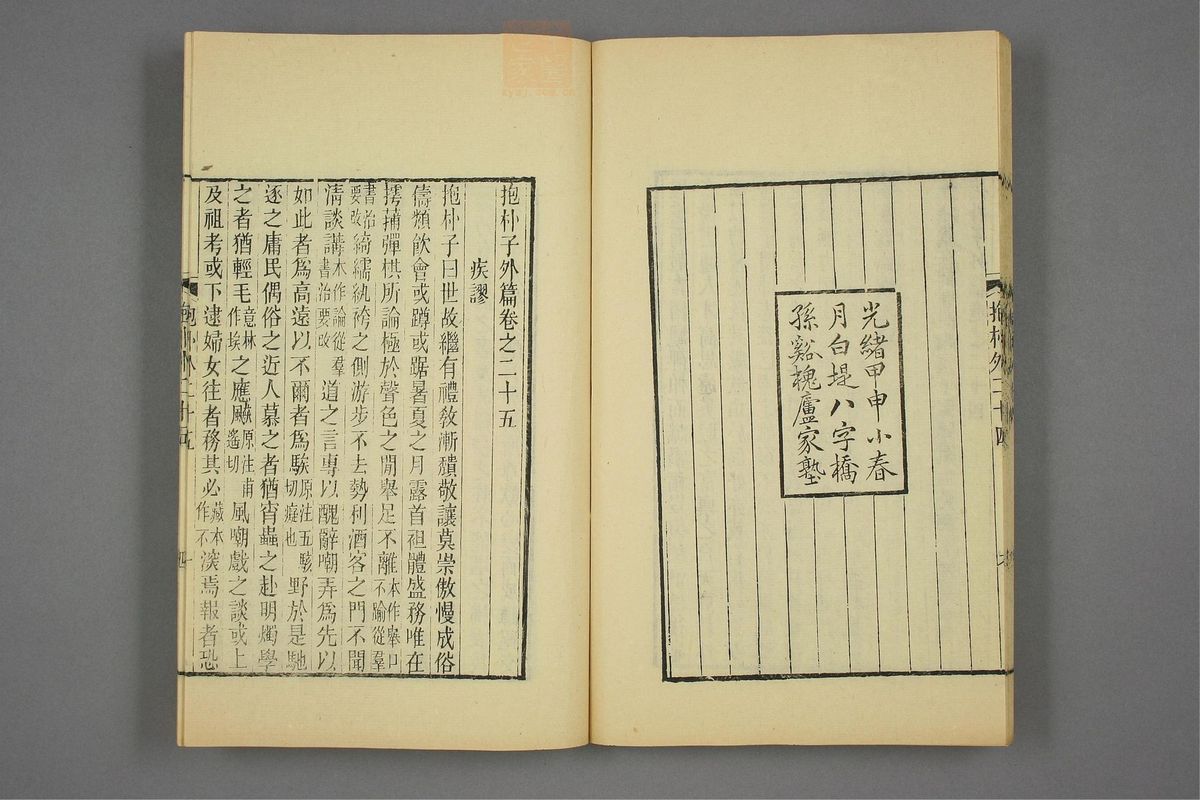 光緒甲申小春
月白堤八字橋
孫谿槐廬家塾
抱朴外二十四
抱朴子外篇卷之二十五
疾謬
抱朴子曰世故繼有禮敎漸穨敬讓莫崇傲慢成俗
儔類飲會或蹲或踞暑夏之月露首袒體盛務唯在
摴蒱彈棋所論極於聲色之閒舉足不離本作舉口不踰從羣
書治要改綺繻紈袴之側游步不去勢利酒客之門不聞
淸談講本作論從羣書治要改道之言專以醜辭嘲弄爲先以
如此者爲高遠以不爾者爲騃原注五駭切癡也野於是馳
逐之庸民偶俗之近人慕之者猶宵蟲之赴明燭學
之者猶輕毛意林作埃之應飇原注甫遙切風嘲戲之談或上
及祖考或下逮婦女往者務其必藏本作不深焉報者恐
抱朴外二十五